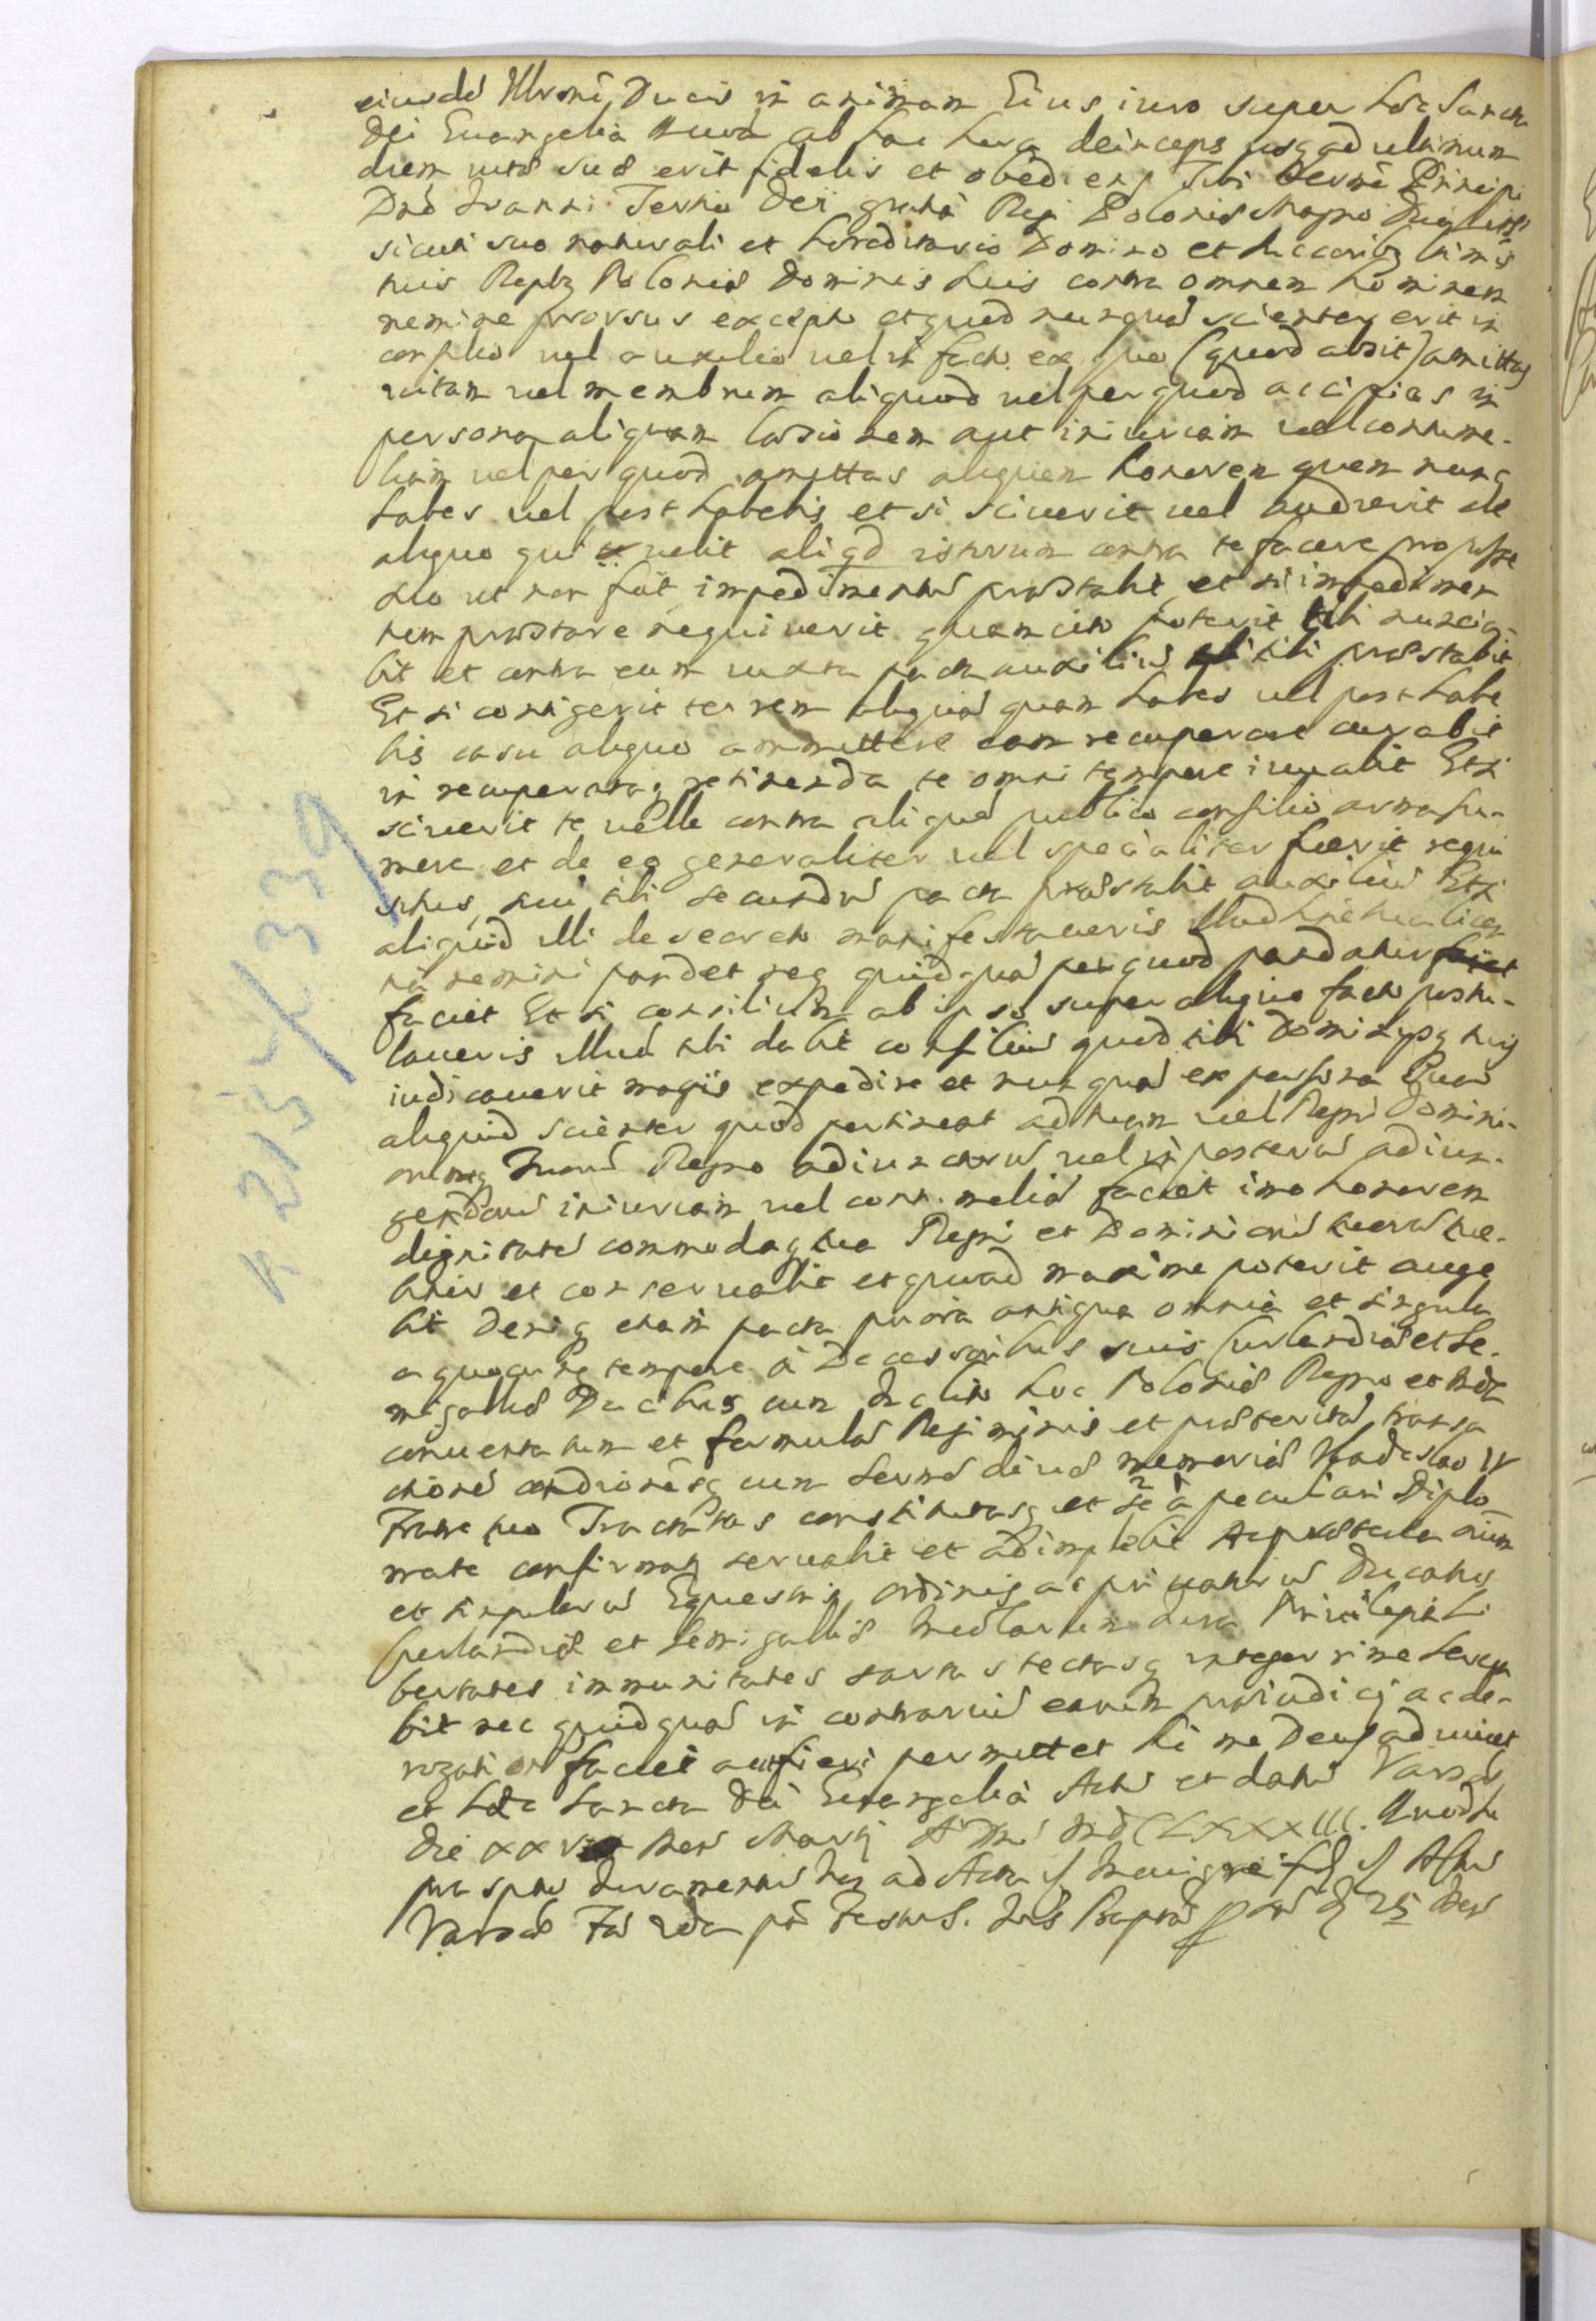 eiusdē Illrmi Ducis in animam Eius iuro super hæc Sancta
Dei Euangelia quod ab hac hora deinceps usq ad ultimum
diem vitæ suæ erit fidelis et obediens Tibi Sermo Principi
Dno Ioanni Tertio Dei gratia Regi Poloniæ Magno Duci
sicuti suo naturali et hæreditario Domino et Successoribq
tuis Regibq Poloniæ Dominis suis contra omnem hominem
nemine prorsus excepto et quod nunquā scienter erit in
consilio vel auxilio vel in facto ex quo (quod absit) amittas
vitam vel membrum aliquod vel per quod accipias in
persona aliquam læsionem aut iniuriam vel contume-
liam vel per quod amittas aliquem honorem quem nunc
habes vel post habebis et si sciverit vel audierit de
aliquo qui velit aliqd istorum contra te facere pro posse
suo ut non fiat impedimentū præstabit et si impedimen
tum præstare nequiverit quam cito poterit tibi nuncia-
bit et contra eum iuxta pacta auxiliū tibi præstabit
Et si contigerit te rem aliquā quam habes vel post habe
bis casu aliquo ammittere eam recuperare curabit
in recuperataq retinenda te omni tempore iuvabit Et si
sciverit te velle contra aliquē publico consilio arma su-
mere et de eo generaliter vel specialiter fuerit requi
situs, sui tibi secundū pacta præstabit auxiliū Et si
aliquid illi de secreto manifestaveris illud sine tua licen
tia nemini pandet neq quidquā per quod pandatur
faciet Et si consilium ab ipso super aliquo facto postu-
laveris illud tibi dabit consiliū quod tibi Dominysq tuis
iudicaverit magis expedire et nunquā ex persona sua
aliquid scienter quod pertineat ad tuam vel Regni Domini-
orumq Tuorū Regno adiunctorū vel in posterū adiun-
gendorū iniuriam vel contumeliā faciet imo honorem
dignitatē commodaq tua Regni et Dominiorū tuorū tue-
bitur et conservabit et quoad maxime poterit auge
bit Deniq etiam pacta priora antiqua omnia et singula
a quocunq tempore à Decessoribus suis Curlandiæ et Se-
migalliæ Ducibus cum Inclito hoc Poloniæ Regno et
conventa tum et formulā Regiminis et præteritā transa
ctionē conditionesq cum Sermo divæ memoriæ Vladislao IV
Fratre tuo Tractatas constitutasq et Te à peculiari Diplo
mate confirmatas servabit et adimplebit Ac præterea oium
et singulorū Equestris ordinis ac privatorū Ducatus
Curlandiæ et Semigalliæ Incolarum iura Privilegia Li
bertates immunitates sarta tectasq integerrime serva
bit nec quidquā in contrariū eorum præiudicij ac de-
rogation faciet aut fieri permittet Si me Deus adiuvet
et hæc Sancta Dei Euangelia Actū et datū Varsaviæ
Die XXV Men Martij A° Dni MDCLXXXIII. Quod
Iuramentū ad Acta
Varsav